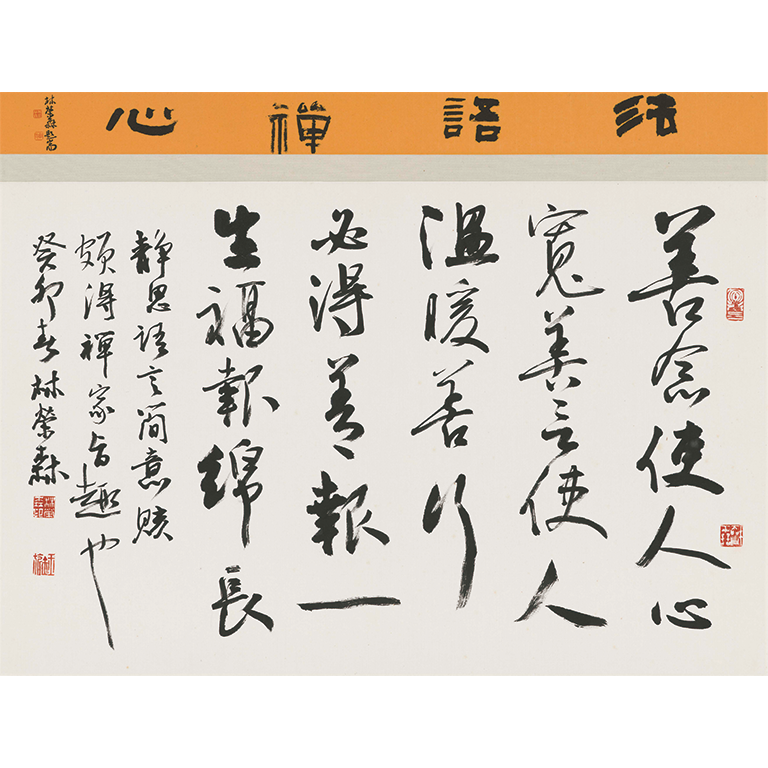 法語禪心
林榮森題耑
善念使人心
寬美言使人
溫暖善行
必得善報一
生福報綿長
靜思語言簡意賅
頗得禪家旨趣也
癸卯春林榮森